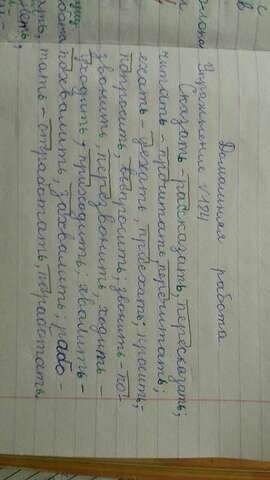 Домашняя работа
Упражнение №184
Сказать - рассказать, пересказать;
читать - прочитать, перечитать;
ехать - уехать, приехать; просить -
попросить, выпросить; звонить - по-
звонить, перезвонить, ходить -
уходить, приходить; хвалить -
похвалить, захвалить; рабо-
тать - отработать, поработать.